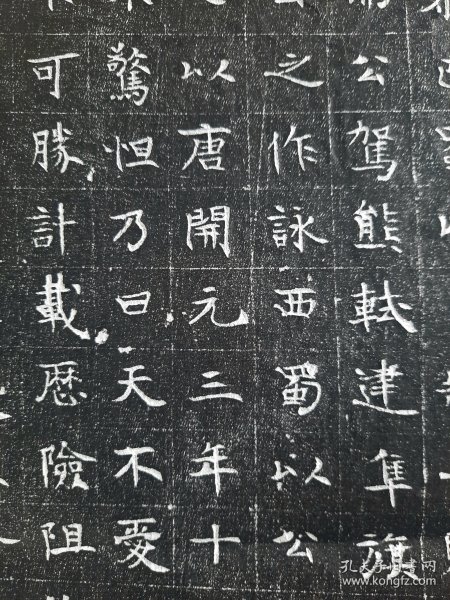 公駕熊軾建隼旟
之作詠西蜀以公
以唐開元三年十
驚怛乃曰天不愛
可勝計載歷險阻
孔夫子旧书网
www.kongfz.com